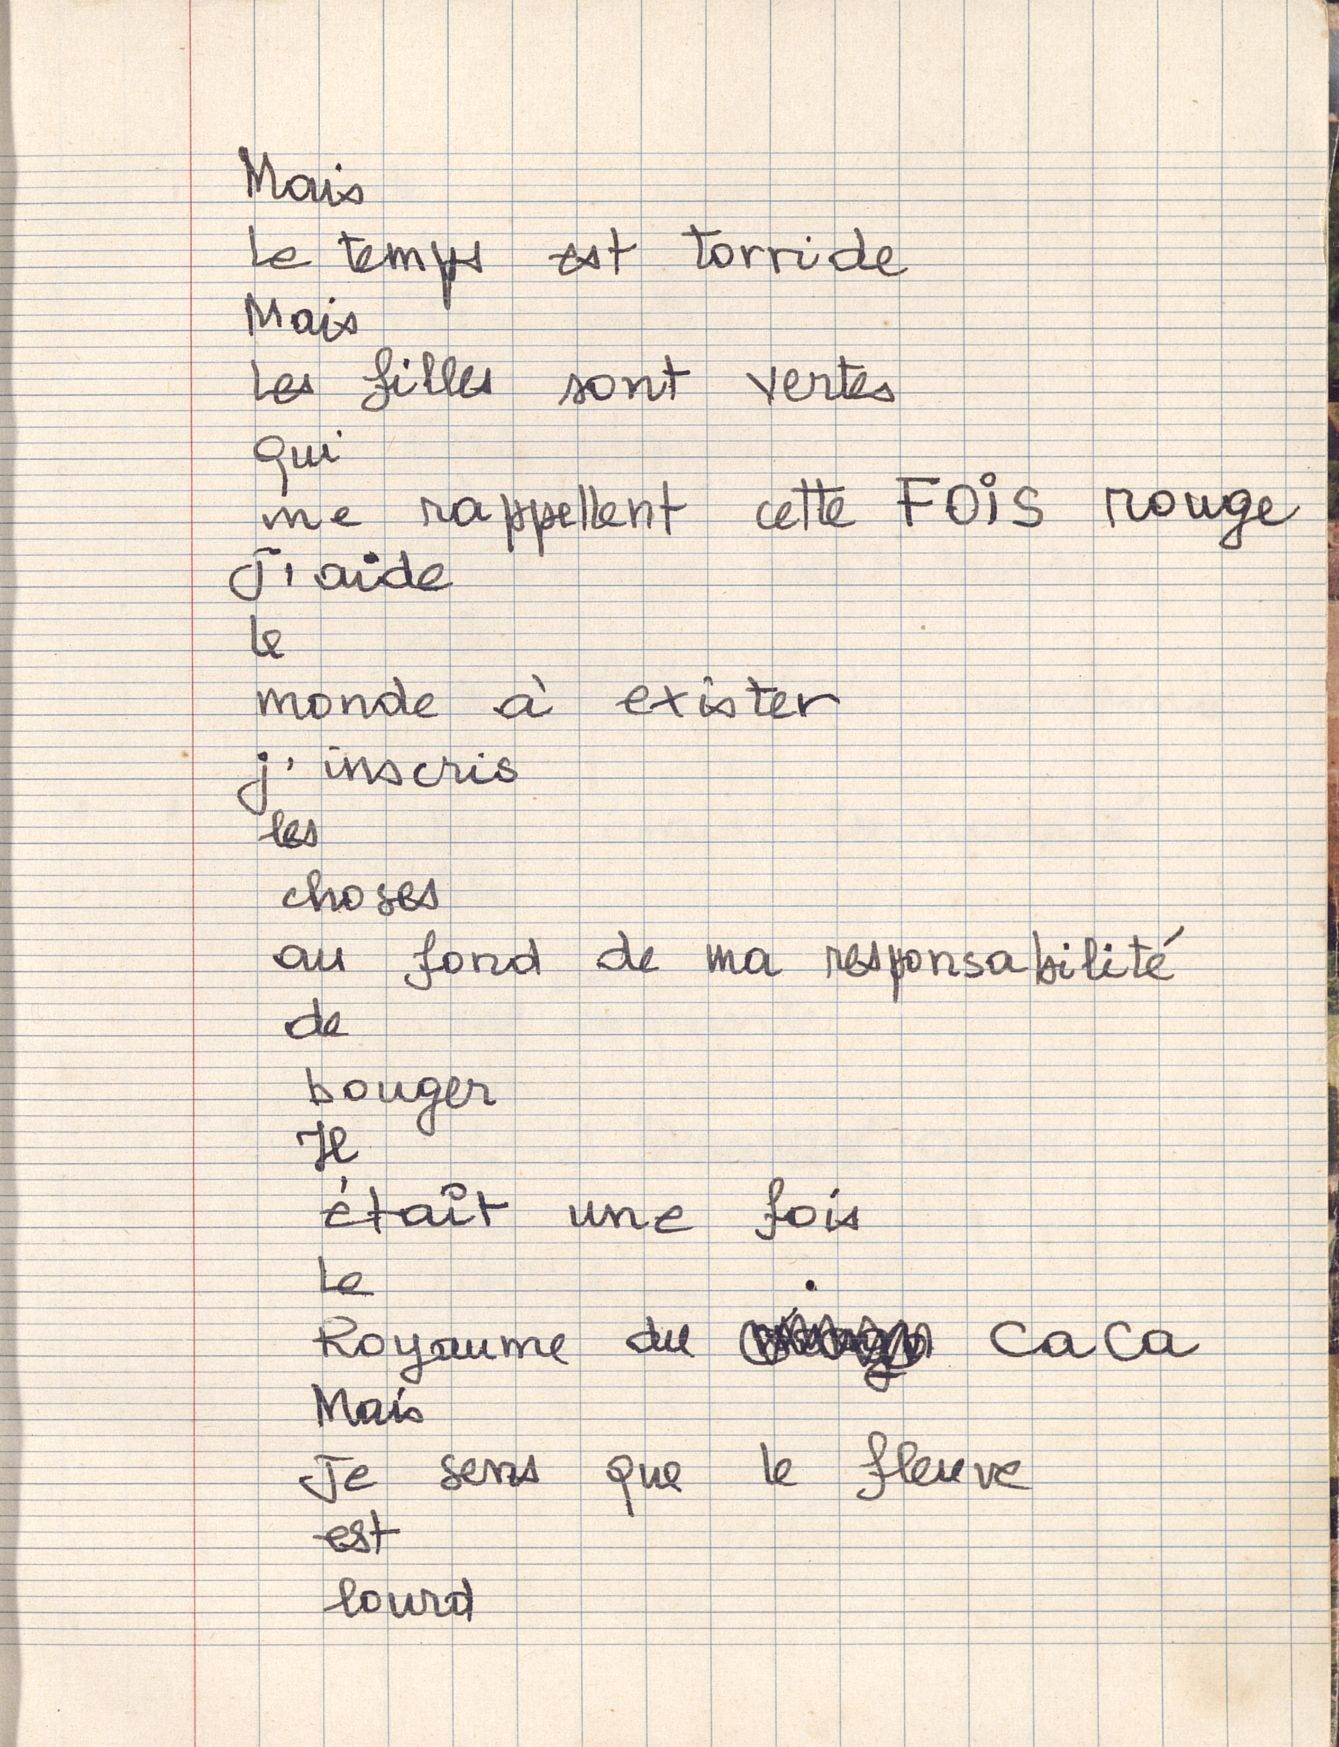 Mais
Le temps est torride
Mais
Les filles sont vertes
qui
me rappellent cette FOiS rouge
J'aide
le
monde à exister
j'inscris
les
choses
au fond de ma responsabilité
de
bouger
Il
étaît une fois
Le
Royaume du caca
Mais
Je sens que le fleuve
est
lourd